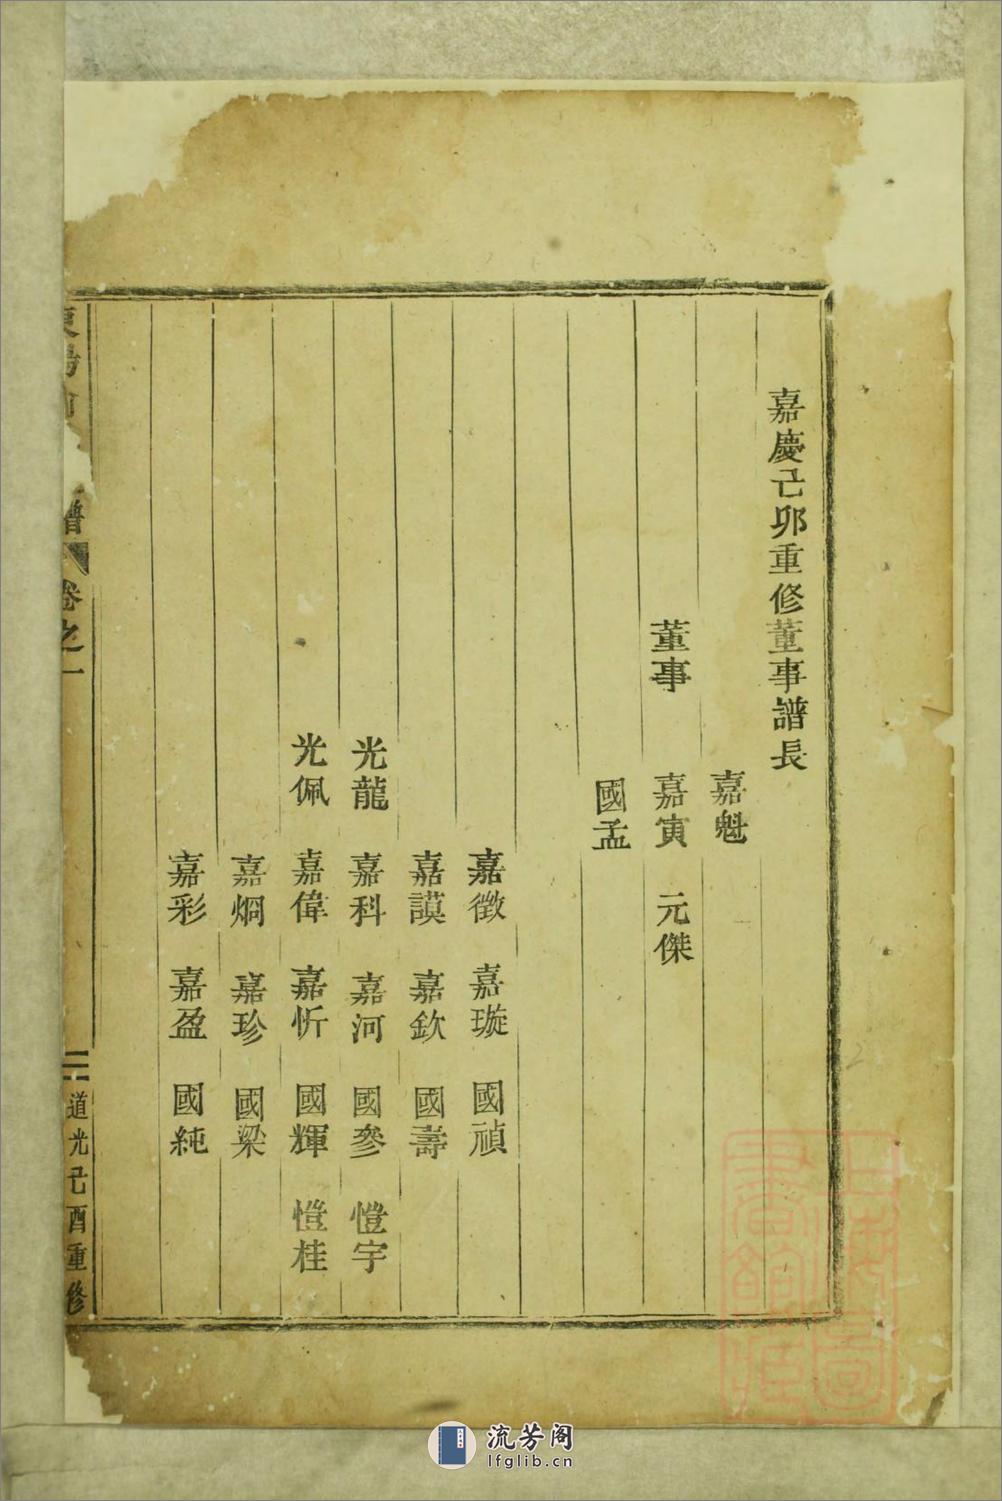 嘉慶己卯重修董事譜長
嘉魁
董事 嘉寅 元傑
國孟
嘉徵 嘉璇 國禎
嘉謨 嘉欽 國壽
光龍 嘉科 嘉河 國參 愷宇
光佩 嘉偉 嘉忻 國輝 愷桂
嘉炯 嘉珍 國梁
嘉彩 嘉盈 國純
東陽 譜 卷之一 二 道光己酉重修
上海圖書館藏
流芳阁
lfglib.cn